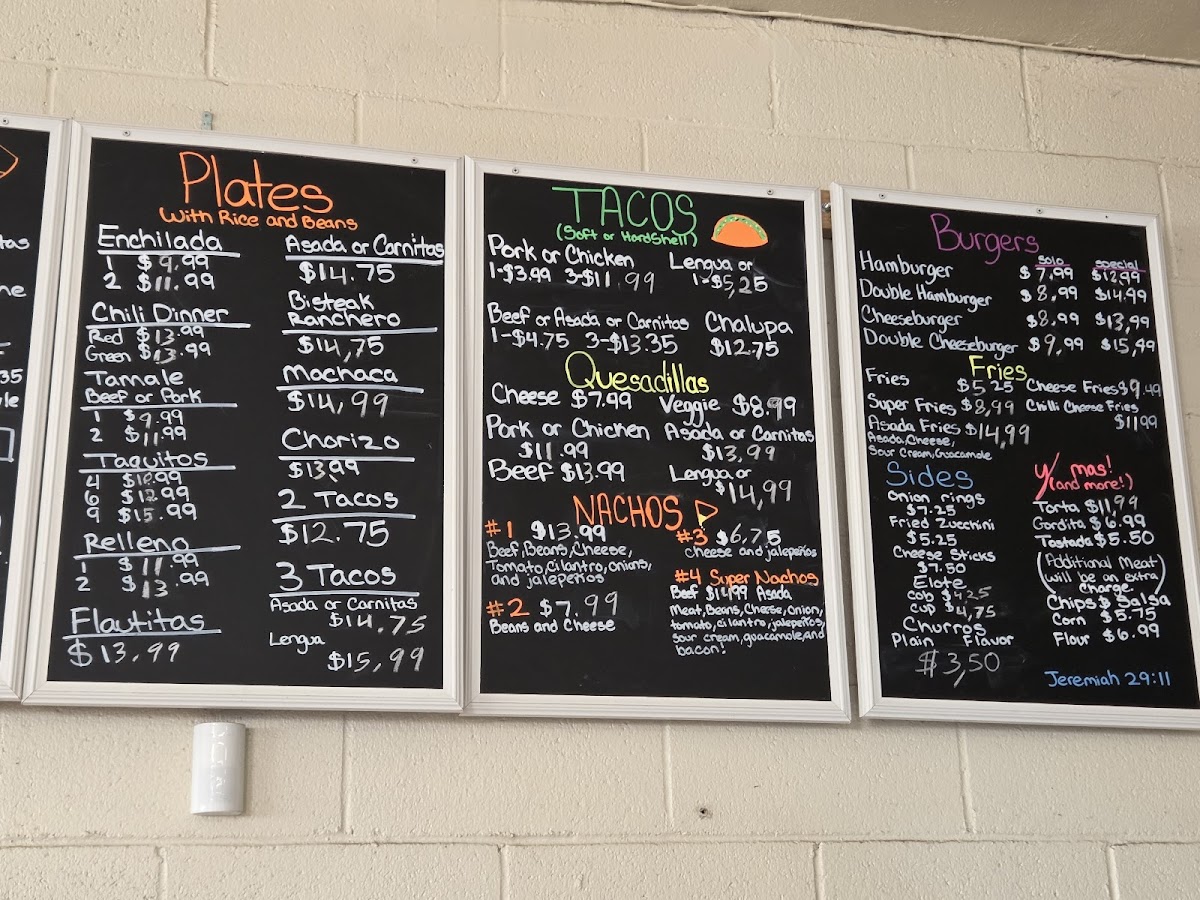 tas
ne
35
le
Plates
With Rice and Beans
Enchilada
1 $9.99
2 $11.99
Chili Dinner
Red $13.99
Green $13.99
Tamale
Beef or Pork
1 $9.99
2 $11.99
Taquitos
4 $10.99
6 $12.99
9 $15.99
Relleno
1 $11.99
2 $13.99
Flautitas
$13.99
Asada or Carnitas
$14.75
Bisteak
Ranchero
$14,75
Machaca
$14,99
Chorizo
$13,99
2 Tacos
$12.75
3 Tacos
Asada or Carnitas
$14.75
Lengua
$15,99
TACOS
(Soft or HardShell)
Pork or Chicken
1-$3.99 3-$11.99
Lengua or
1-$5,25
Beef or Asada or Carnitas
1-$4.75 3-$13.35
Chalupa
$12.75
Quesadillas
Cheese $7.99 Veggie $8.99
Pork or Chicken
$11.99
Asada or Carnitas
$13,99
Beef $13.99
Lengua or
$14,99
NACHOS
#1 $13.99
Beef, Beans, Cheese,
Tomato, cilantro, onions,
and jalepeños
#2 $7.99
Beans and Cheese
#3 $6,75
cheese and jalepeños
#4 Super Nachos
Beef $14.99 Asada
Meat, Beans, Cheese, Onion,
tomato, cilantro, jalepeños,
sour cream, guacamole, and
bacon!
Burgers
solo special
Hamburger $7,99 $12,99
Double Hamburger $8.99 $14.99
Cheeseburger $8,99 $13,99
Double Cheeseburger $9,99 $15,49
Fries
Fries $5.25 Cheese Fries $9.49
Super Fries $8,99 Chilli Cheese Fries
$11.99
Asada Fries $14,99
Asada, Cheese,
Sour Cream, Guacamole
Sides
Onion rings
$7.25
Fried Zucchini
$5.25
Cheese Sticks
$7.50
Elote
cob $4.25
cup $4,75
Churros
Plain Flavor
$3,50
y mas!
(and more!)
Torta $11,99
Gordita $6.99
Tostada $5.50
(Additional Meat
will be an extra
charge.)
Chips & Salsa
Corn $5.75
Flour $6.99
Jeremiah 29:11